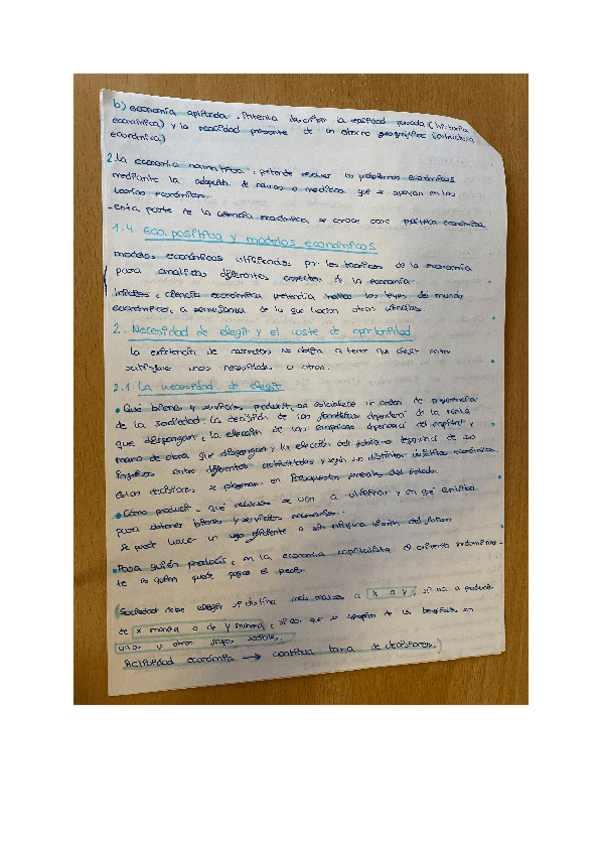 b) Economía aplicada. Intenta describir la realidad pasada (historia
económica) y la realidad presente de un ámbito geográfico (estructura
económica)
2. La economía normativa: pretende resolver los problemas económicos
mediante la adopción de normas o medidas que se apoyan en las
teorías económicas.
- Esta parte de la ciencia económica, se conoce como política económica
1.4 Eco. positiva y modelos económicos
modelos económicos utilizados por los teóricos de la economía
para analizar diferentes aspectos de la economía.
Inicios, ciencia económica pretendía hallar las leyes del mundo
económico, a semejanza de lo que hacían otras ciencias.
2. Necesidad de elegir y el coste de oportunidad
La existencia de recursos nos obliga a tener que elegir entre
satisfacer unas necesidades u otras.
2.1 La necesidad de elegir
• Qué bienes y servicios producir, se establece un orden de
de la sociedad. La decisión de las familias dependerá de la renta
que dispongan, la elección de las empresas dependerá del capital y
mano de obra que dispongan y la elección del gobierno dependerá de sus
ingresos. Entre diferentes y según sus distintos objetivos económicos
Estas decisiones se plasman en Presupuestos Generales del Estado.
• Cómo producir - qué recursos se van a utilizar y en qué cantidad
para obtener bienes y servicios necesarios.
Se puede hacer un uso eficiente o del futuro
• Para quién producir, en la economía capitalista el criterio
te es quién puede pagar el precio
(Sociedad debe elegir si destina más recursos a x o y, si va a producir
de x manera o de y manera, y si los que se apropian de los beneficios son
unos u otros grupos sociales.
Actividad económica → continua toma de decisiones.)